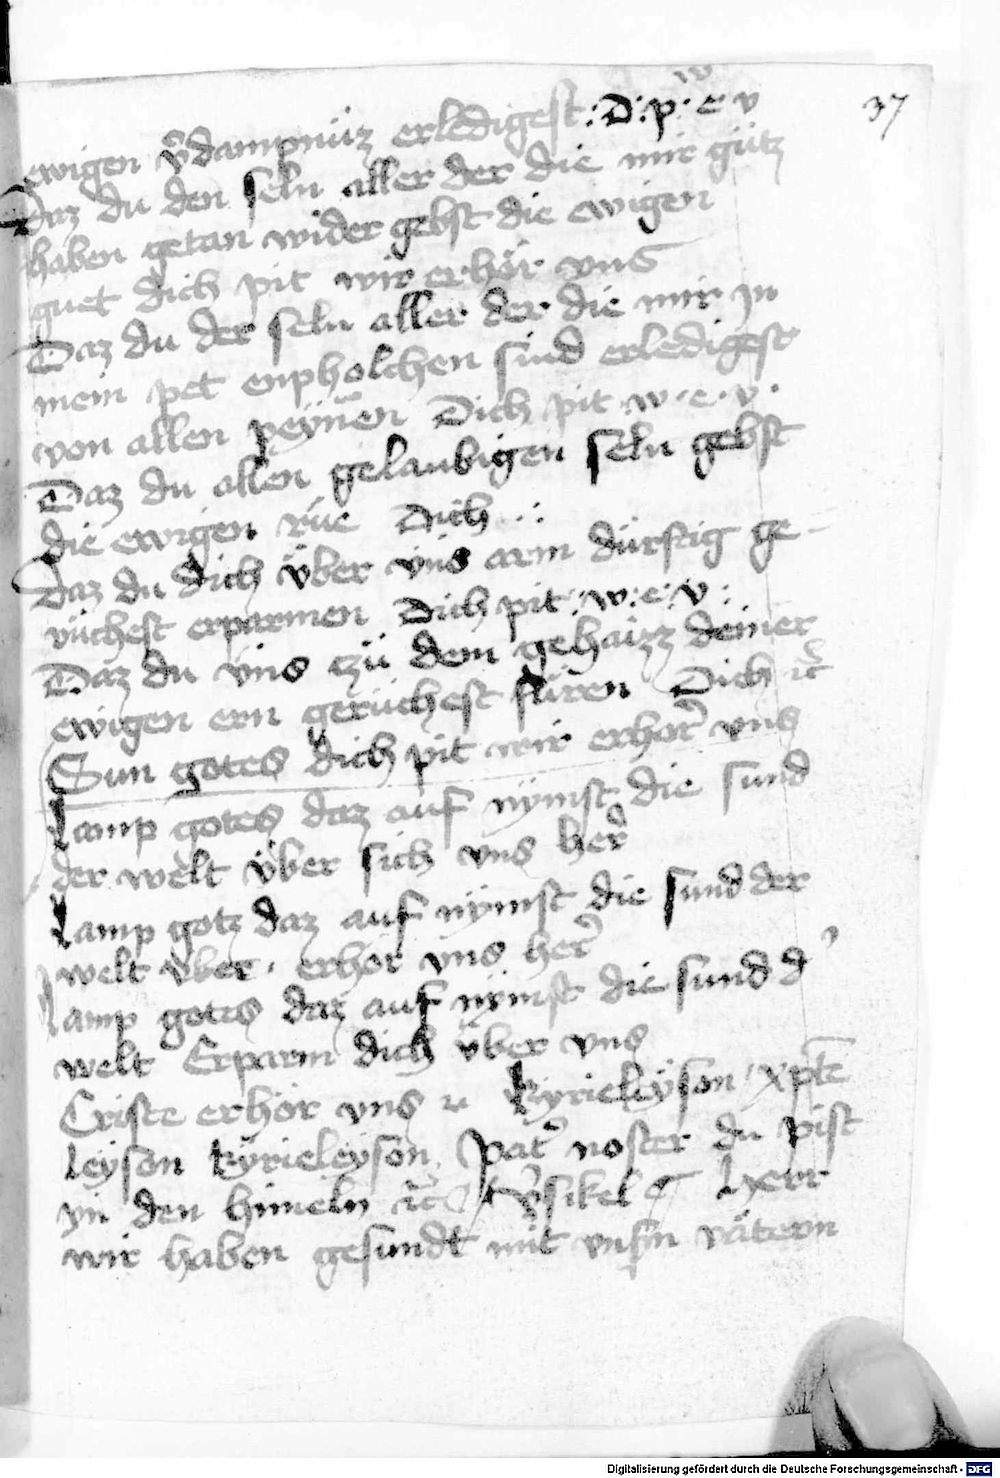 37
ewigen v̄dampnuz erledigest : D : p · w e · v
Daz du den seln aller der die mir gütz
haben getan wider gebst die ewigen
guet dich pit wir erhör vns
Daz du der seln aller der die mir jn
mein pet enpholchen sind erledigest
von allen peyn̄en Dich pit w · e · v ·
Daz du allen gelaubigen seln gebst
die ewigen rüe Dich ·.·:
Daz du dich über vns arm dürftig ge-
rüchest erparmen Dich pit : w : e : v :
Daz du üns czü dem gehaizz deiner
ewigen ern gerüchest füren Dich ⁊c̄
Sun gotes dich pit wir erhor vns
Lamp gotes daz auf nymst die sund
der welt über sich vns her̄
Lamp gotz daz auf nymst die sund der
welt über · erhor vns her̄
Lamp gotes daz auf nymst die sund d̉
welt Erparm dich über vns
Criste erhör vns ⁊c kyrieleyson xp̄te
leyson kyrieleyson Pat̉ noster du pist
yn den himeln ⁊c̄ v̉sikel Herr
wir haben gesundt mit vnsn̄ vätern
Digitalisierung gefördert durch die Deutsche Forschungsgemeinschaft - DFG